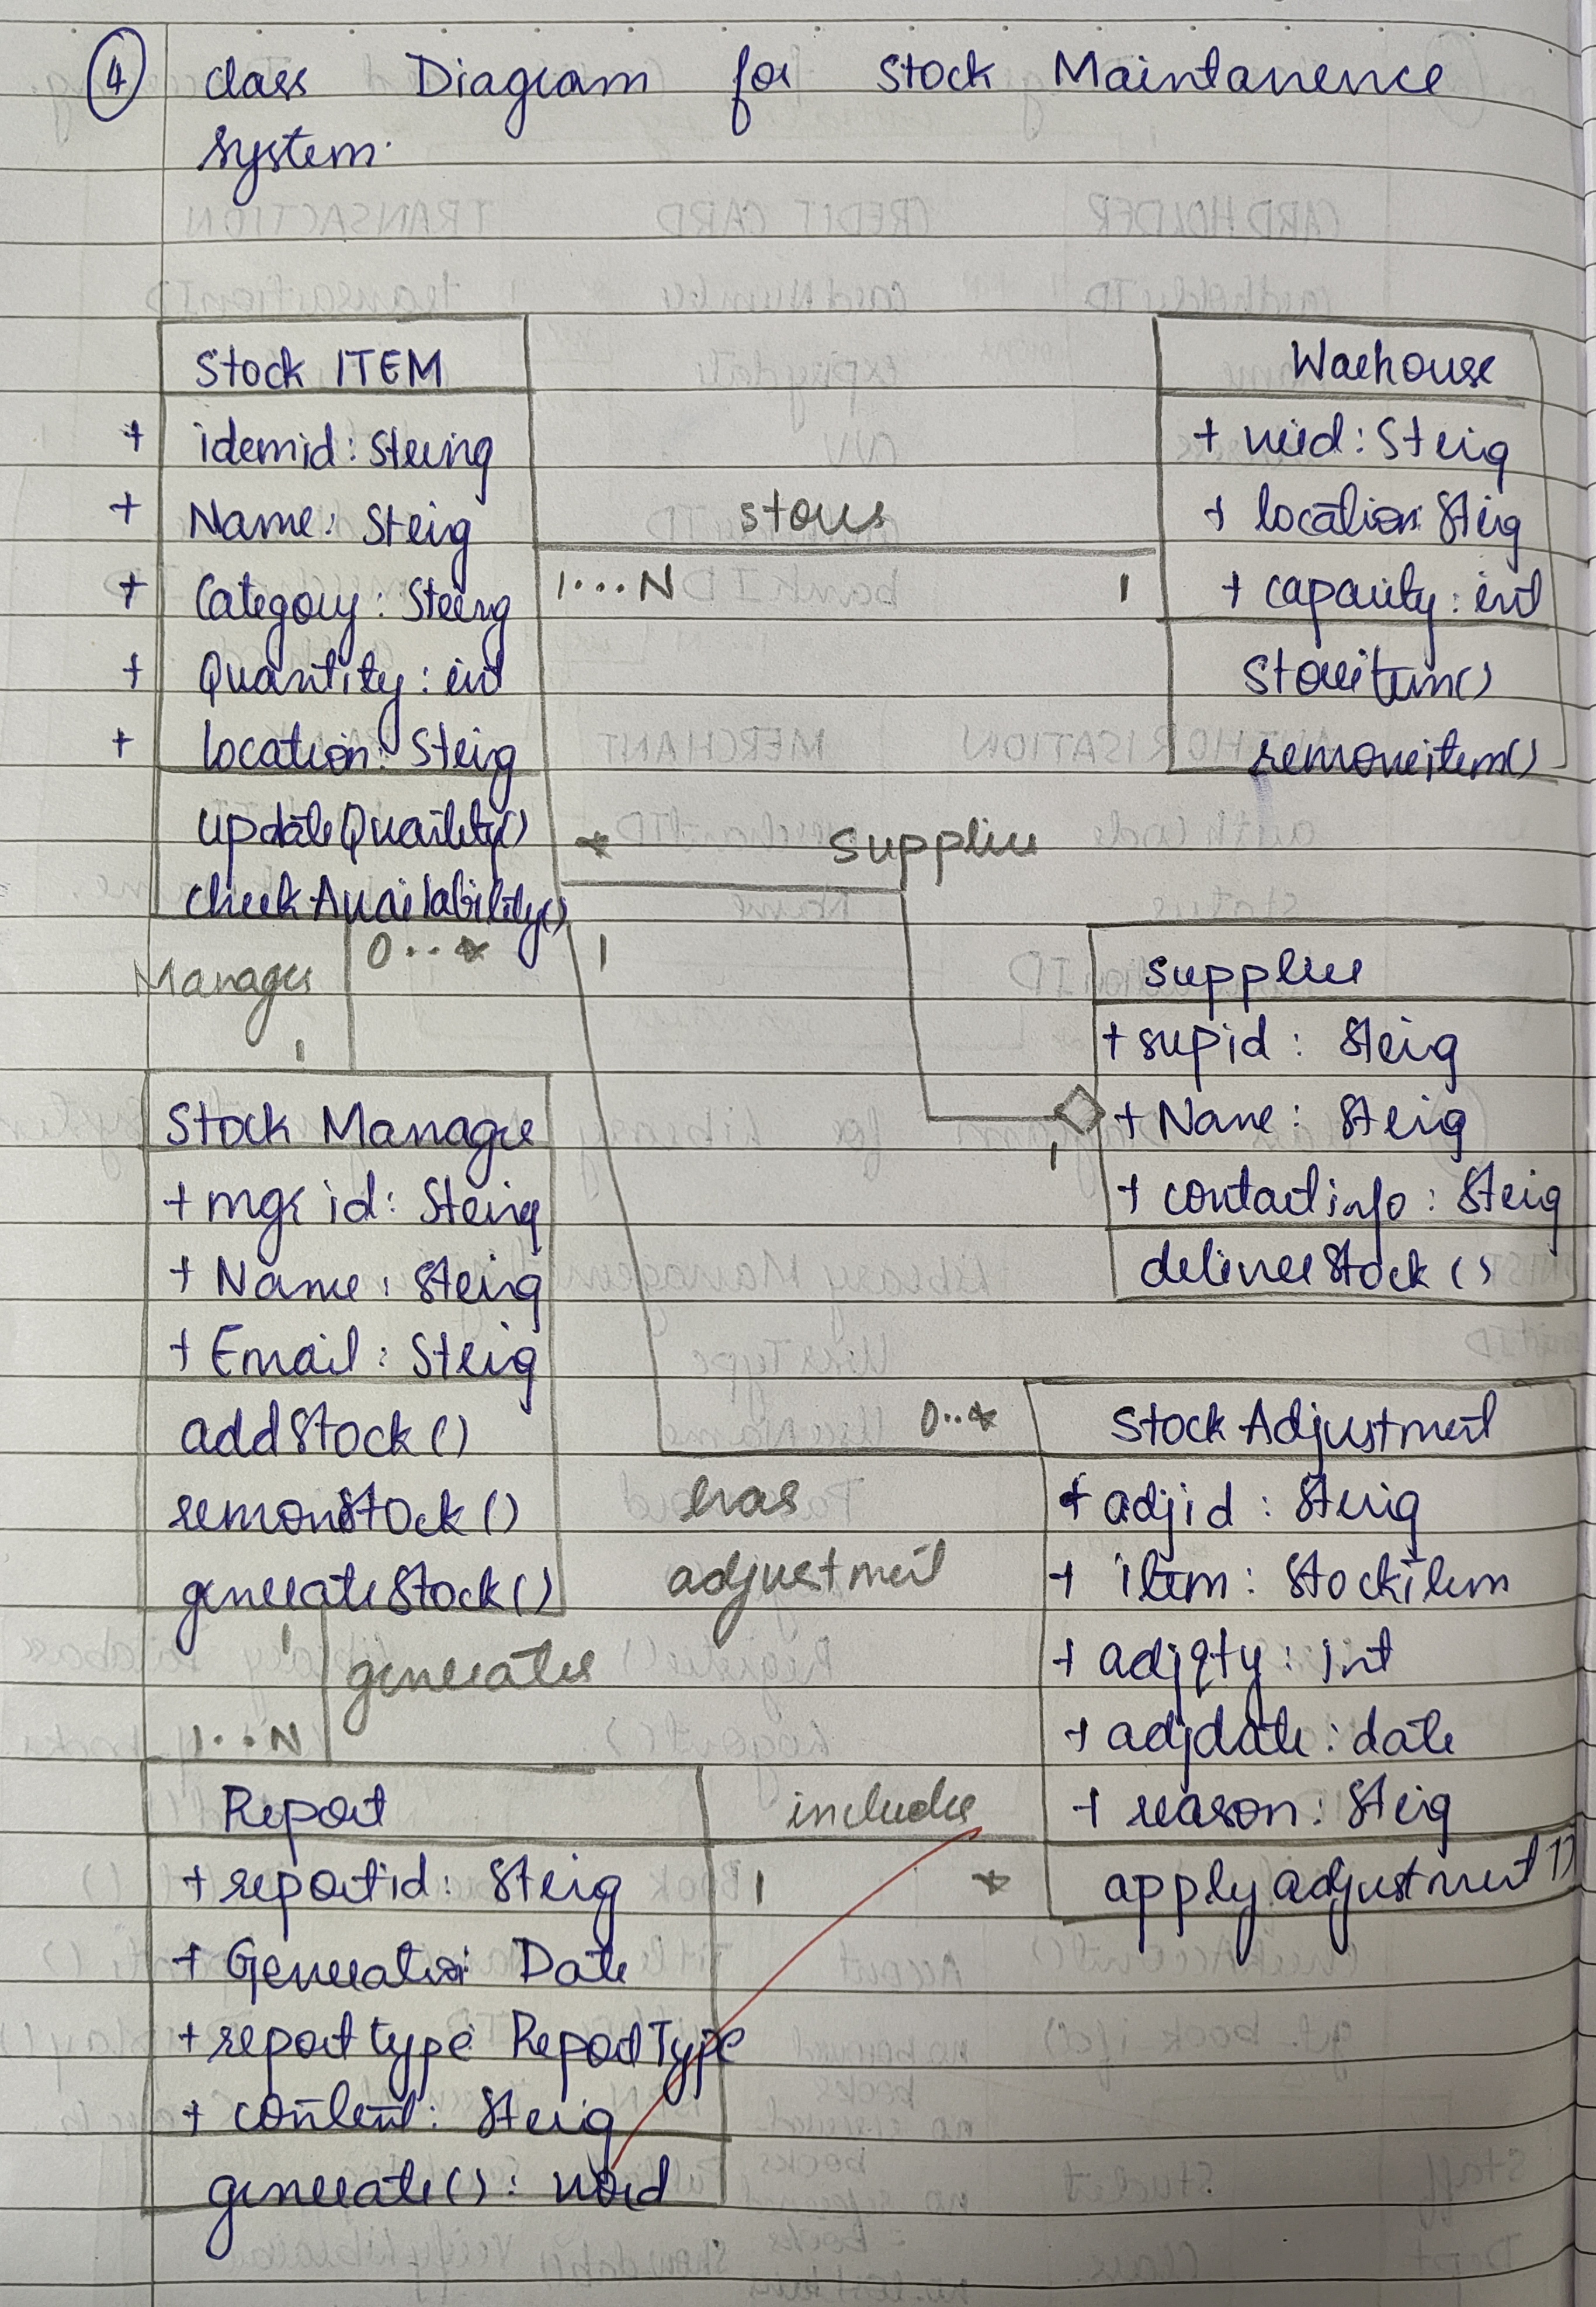 4 class Diagram for Stock Maintanence
system.
Stock ITEM
+ idemid: String
+ Name: String
+ Category: String
+ Quantity: int
+ location: String
updateQuaility()
checkAvailability()
stores
1...N 1
Warehouse
+ wid: String
+ location: String
+ capacity: int
storeitem()
removeitem()
* Supplier
1
Supplier
+ supid: String
+ Name: String
+ contactinfo: String
deliverStock()
0..* 1
Manages
1
Stock Manager
+ mgr id: String
+ Name: String
+ Email: String
addStock()
removeStock()
generateStock()
0..*
has
adjustment
Stock Adjustment
+ adjid: String
+ item: Stockitem
+ adjqty: int
+ adjdate: date
+ reason: String
applyadjustment()
1
generates
1...N
Report
+ reportid: String
+ Generation: Date
+ reporttype: ReportType
+ content: String
generate(): void
includes
1 *